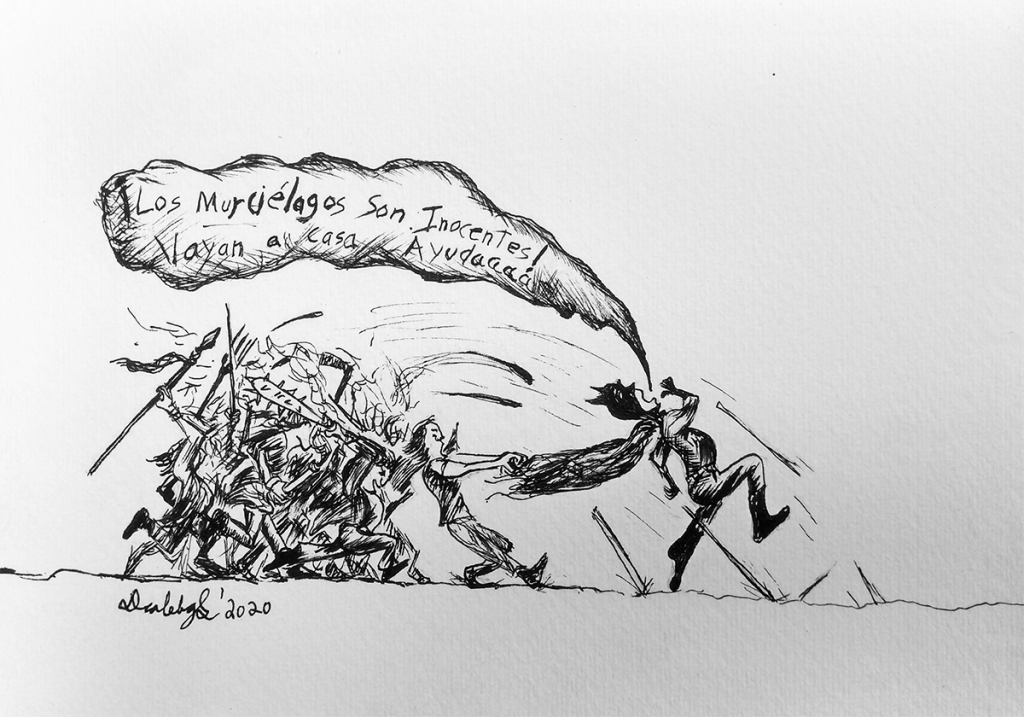 ¡Los Murciélagos Son Inocentes!
Vayan a casa Ayudaaaa
'2020